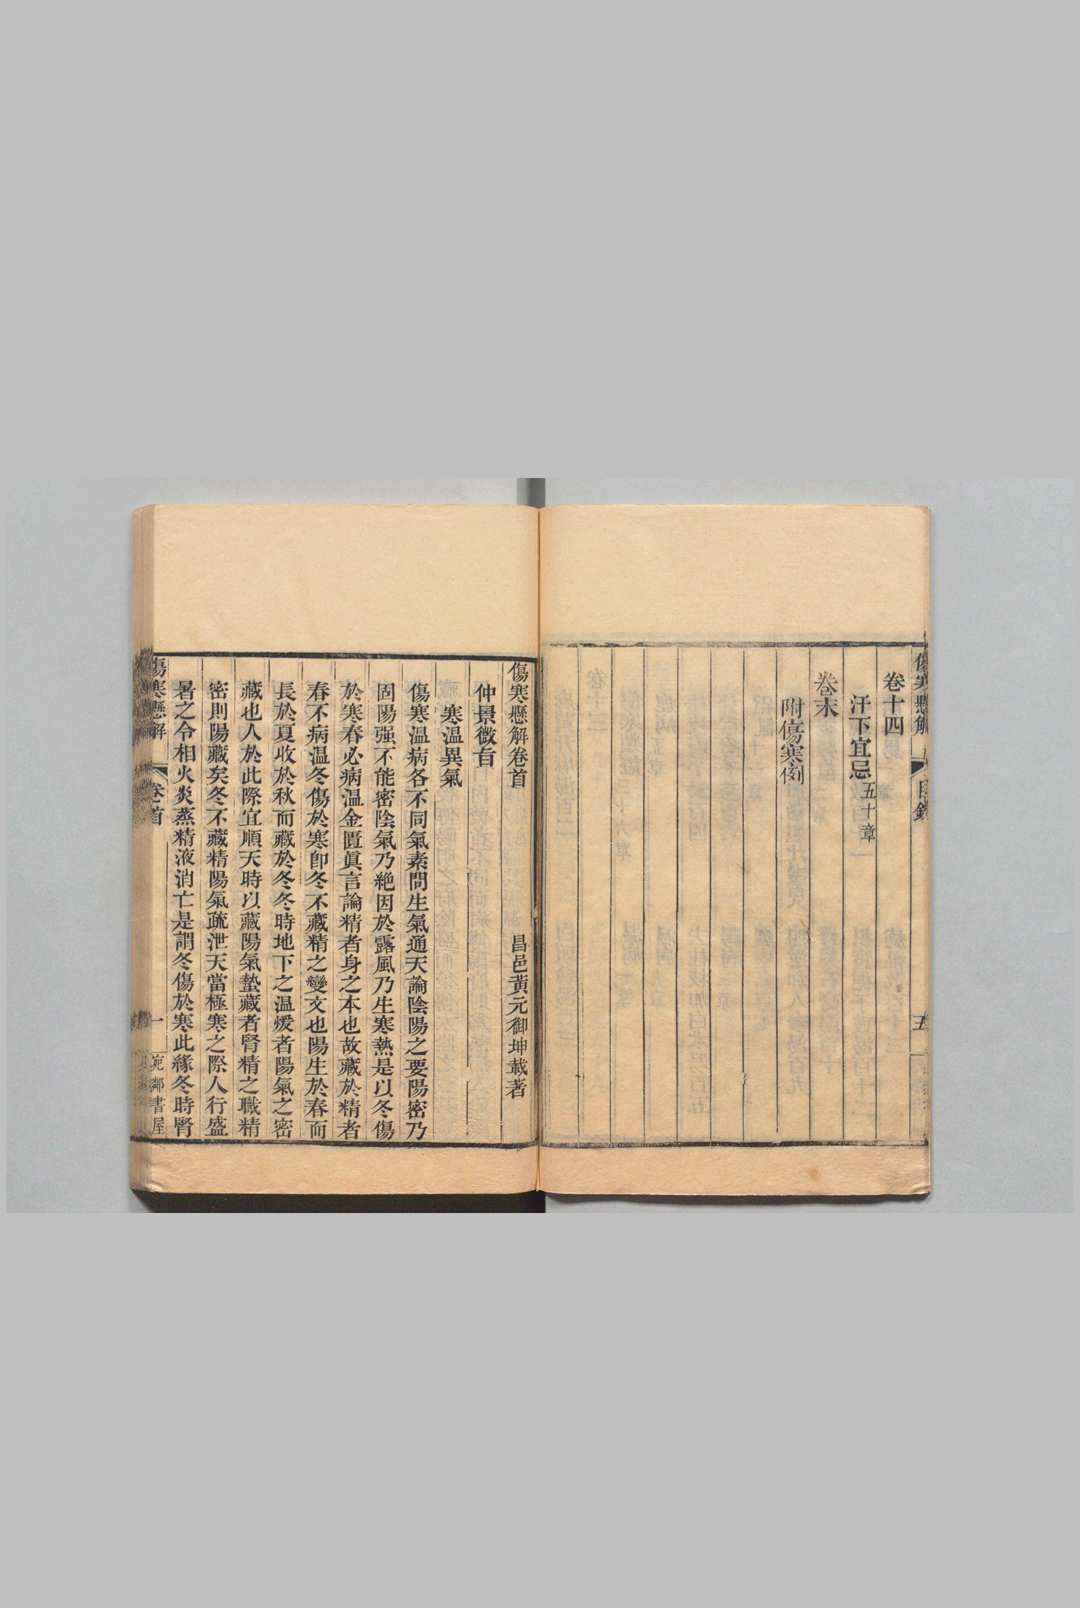 傷寒懸解 目錄 五
卷十四
汗下宜忌五十章
卷末
附傷寒例
傷寒懸解卷首
昌邑黃元御坤載著
仲景微旨
寒溫異氣
傷寒溫病各不同氣素問生氣通天論陰陽之要陽密乃
固陽强不能密陰氣乃絶因於露風乃生寒熱是以冬傷
於寒春必病溫金匱眞言論精者身之本也故藏於精者
春不病溫冬傷於寒卽冬不藏精之變文也陽生於春而
長於夏收於秋而藏於冬冬時地下之溫煖者陽氣之密
藏也人於此際宜順天時以藏陽氣蟄藏者腎精之職精
密則陽藏矣冬不藏精陽氣疏泄天當極寒之際人行盛
暑之令相火炎蒸精液消亡是謂冬傷於寒此緣冬時腎
傷寒懸解 卷首 一 宛鄰書屋